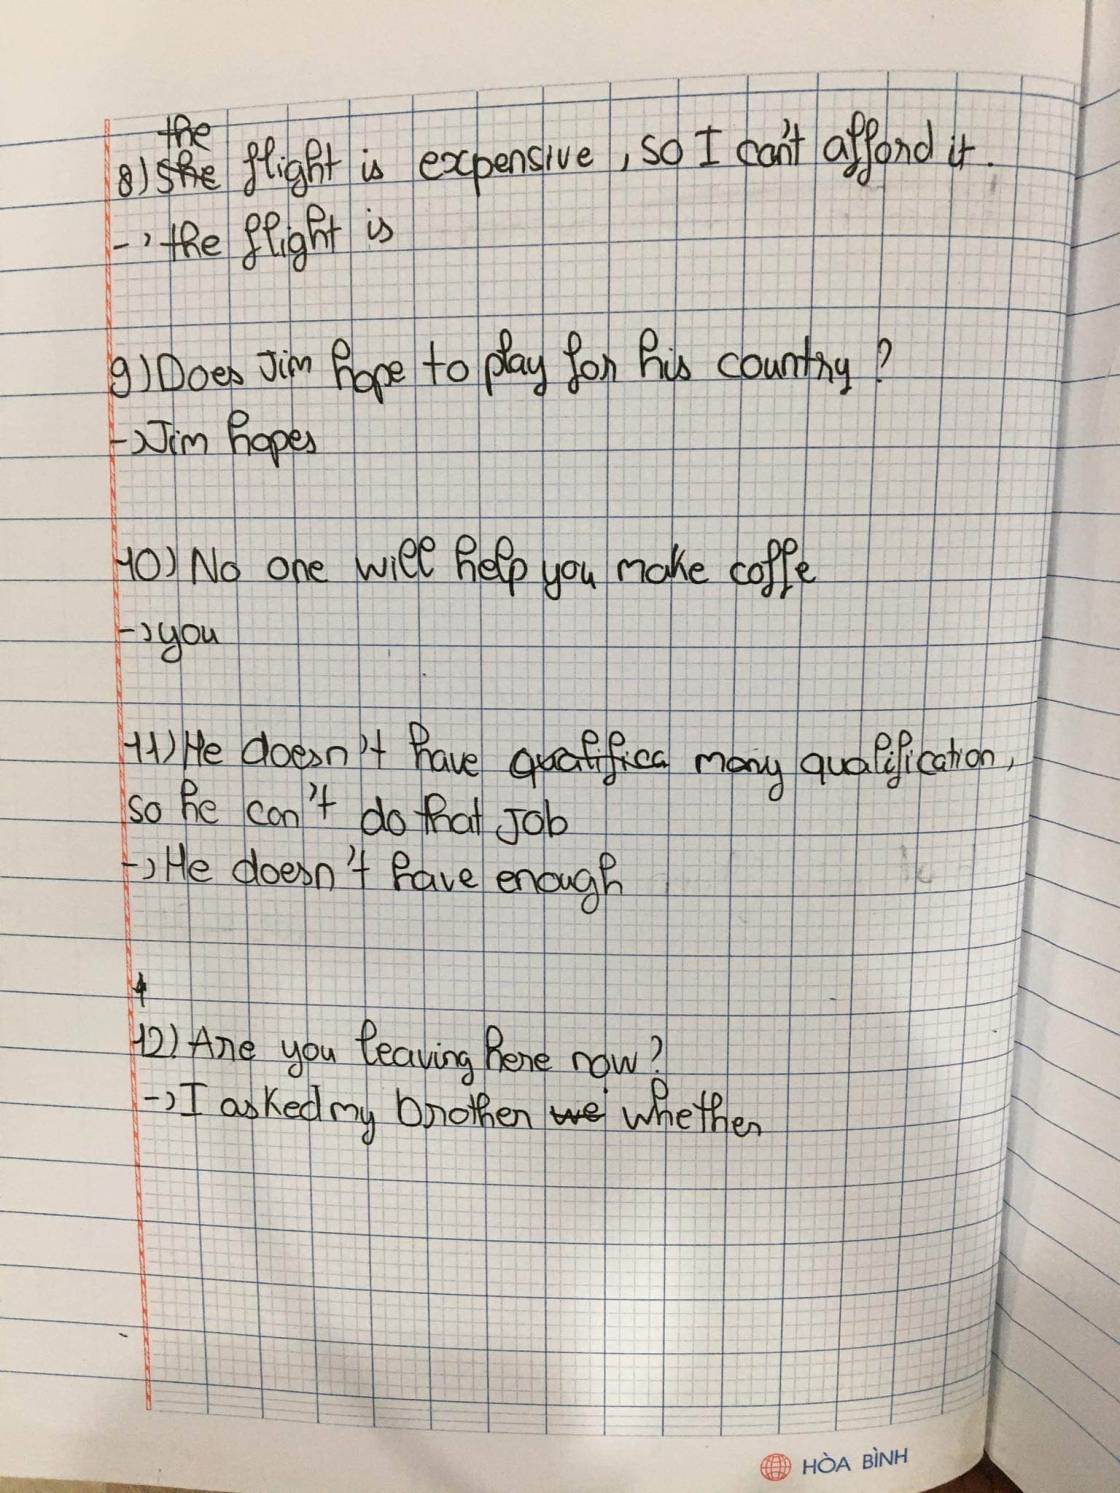 the
8) She flight is expensive, so I can't afford it.
-> the flight is
9) Does Jim hope to play for his country?
-> Jim hopes
10) No one will help you make coffe
-> you
11) He doesn't have qualifica many qualification,
so he can't do that job
-> He doesn't have enough
12) Are you leaving here now?
-> I asked my brother we whether
HÒA BÌNH